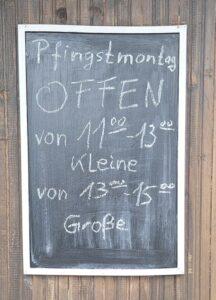 Pfingstmontag
OFFEN
von 11⁰⁰-13⁰⁰
Kleine
von 13⁰⁰-15⁰⁰
Große